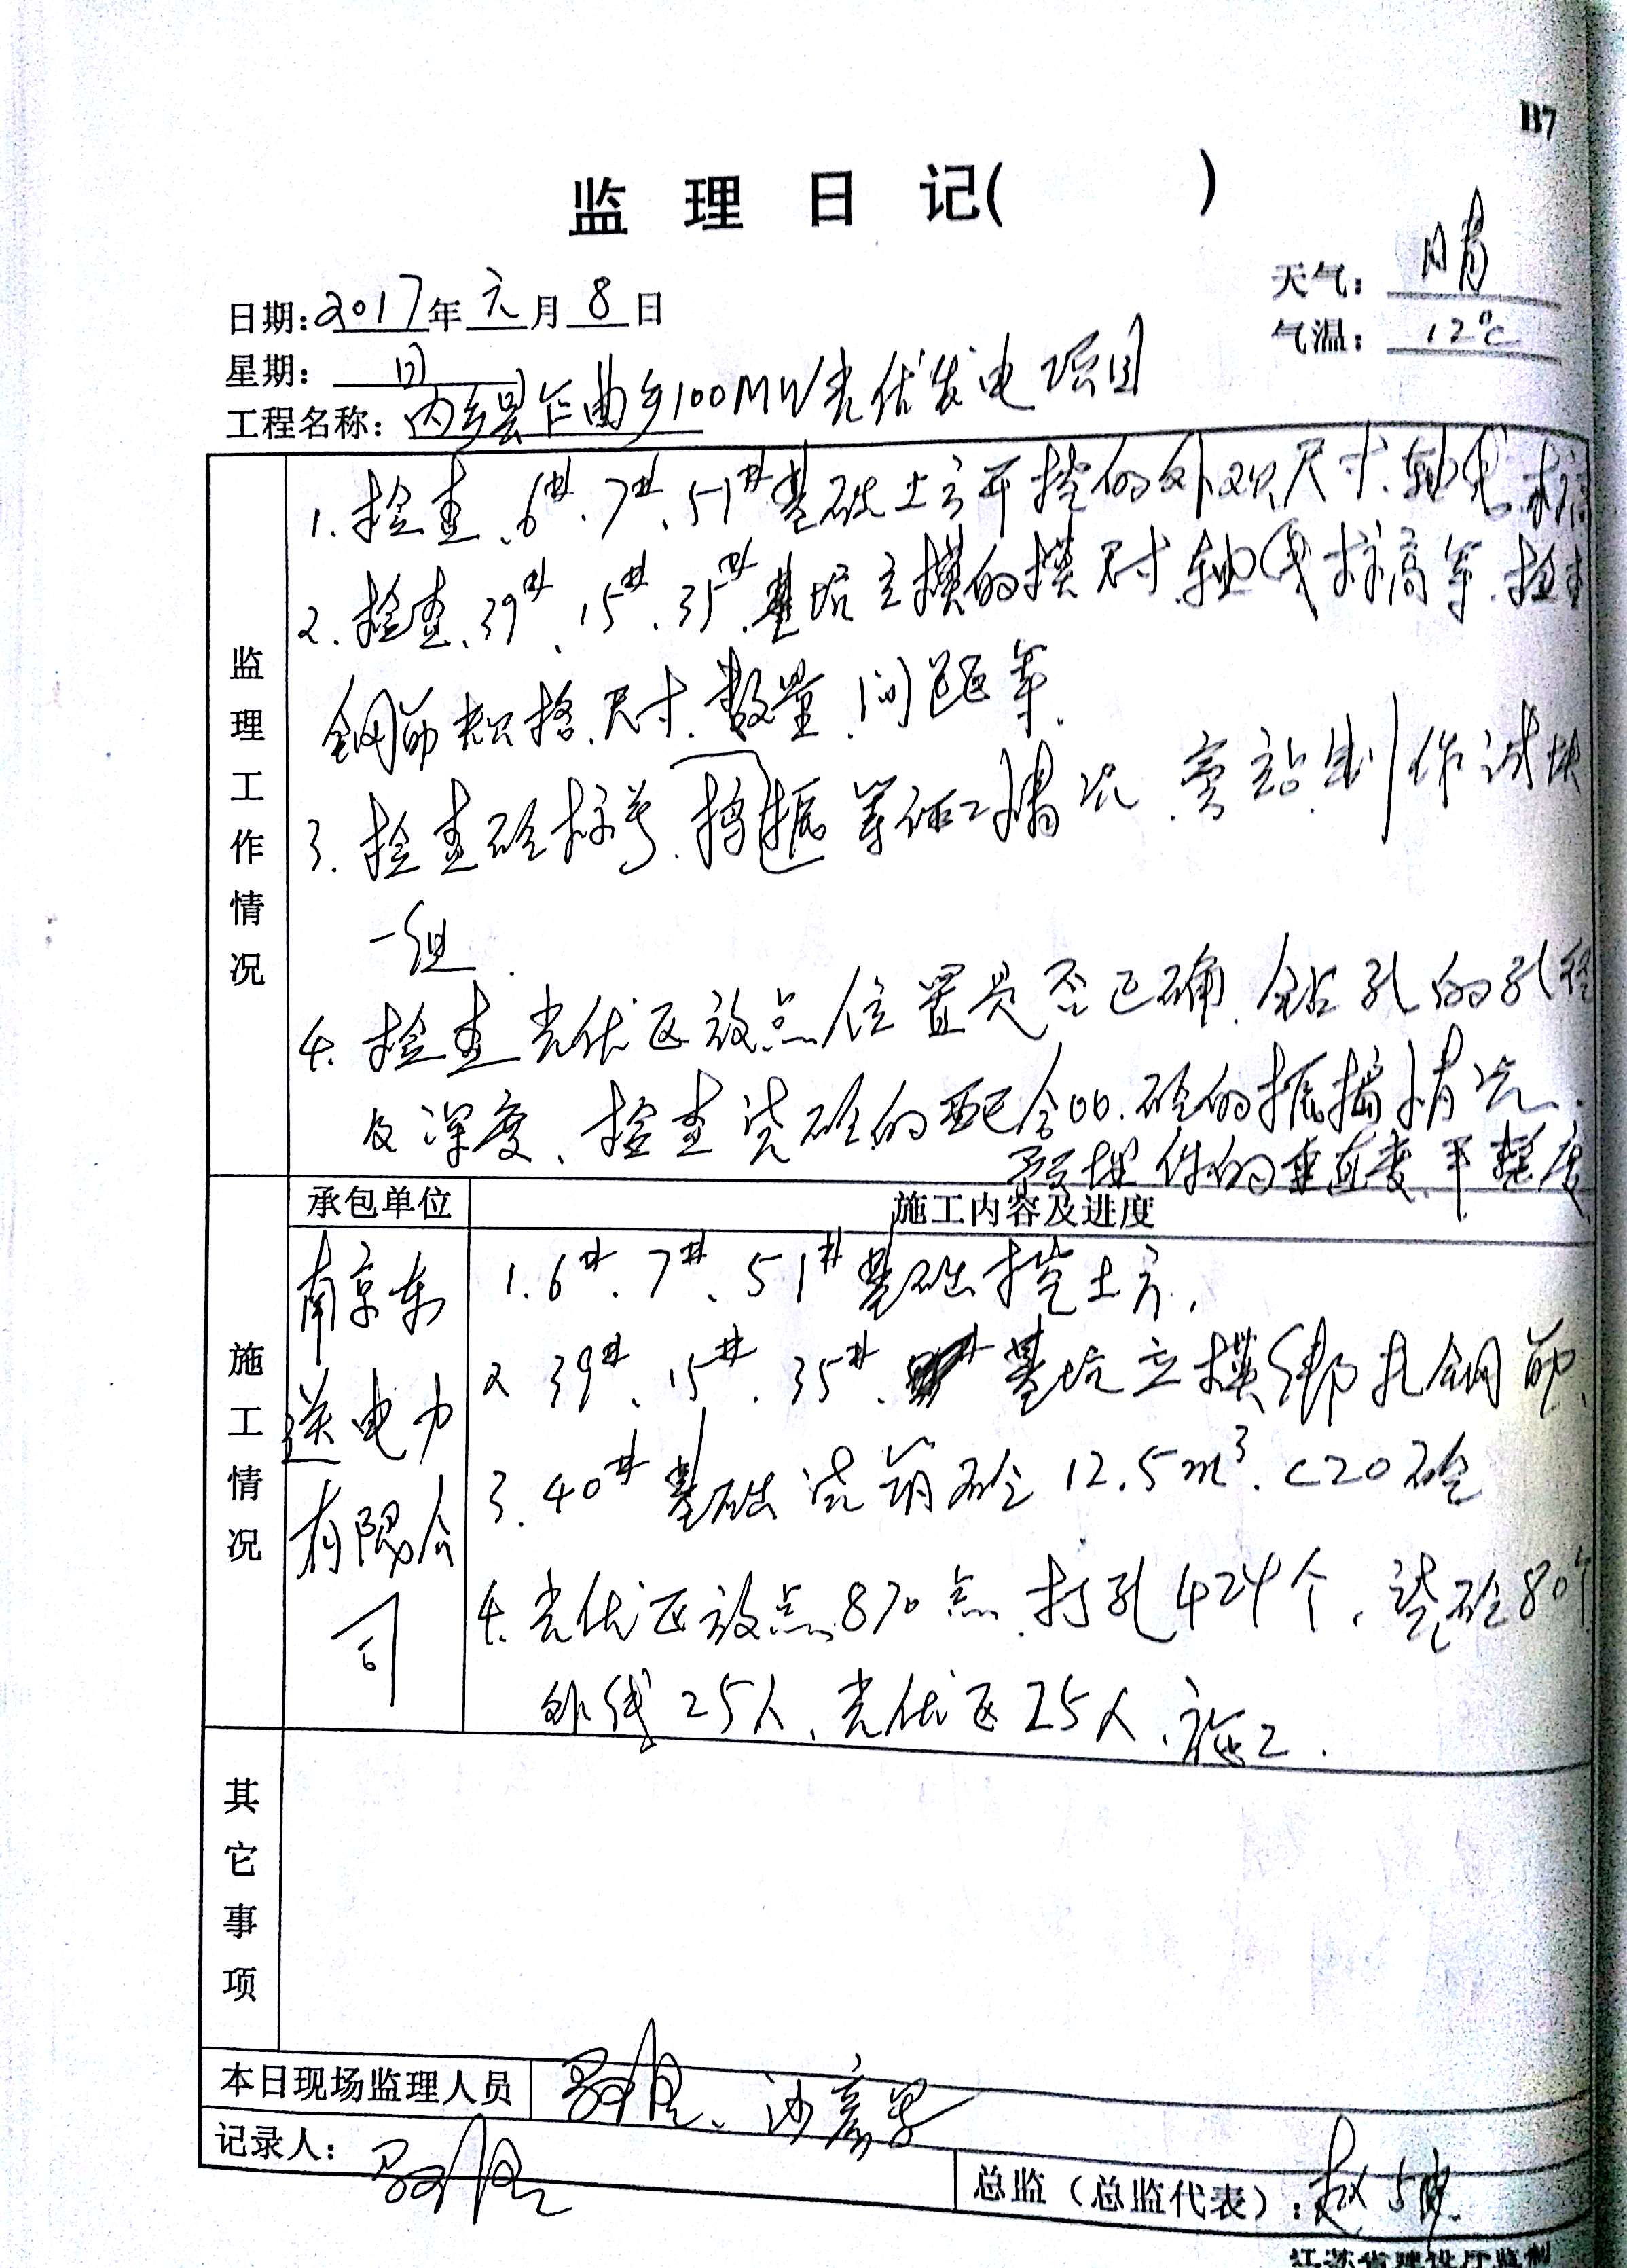 B7
监 理 日 记( )
天气: 晴
日期: 2017年元月8日
气温: 12℃
星期: 日
工程名称: 内乡县乍曲乡100MW光伏发电项目
监理工作情况
1. 检查、6#、7#、51#基础土方开挖的外观尺寸、轴线、标高
2. 检查、39#、15#、35#、基坑立模的模尺寸、轴线标高等、检查
钢筋规格、尺寸、数量、间距等.
3. 检查砼标号、捣振等施工情况、旁站、制作试块
一组.
4. 检查光伏区放点位置是否正确、钻孔的孔径
及深度、检查浇砼的配合比、砼的振捣情况.
预埋件的垂直度、平整度
承包单位 施工内容及进度
施工情况
南京东
送电力
有限公
司
1. 6#、7#、51#基础挖土方.
2 39#、15#、35#、基坑立模绑扎钢筋.
3. 40#基础浇筑砼12.5m³. C20砼
4. 光伏区放点870点、打孔424个、浇砼80个
外线25人、光伏区25人、施工.
其它事项
本日现场监理人员
记录人:
总监(总监代表): 赵
江苏省建设厅监制